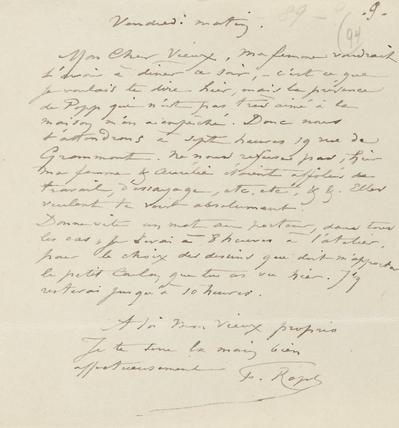 Vendredi matin.
89-9
.9.
(94
Mon Cher Vieux, ma femme voudrait
t'avoir à diner ce soir, - c'est ce que
je voulais te dire hier, mais la présence
de Popp qui n'est pas très aimé à la
maison m'en a empêché. Donc nous
t'attendrons à sept heures 19 rue de
Grammont. Ne nous refuses pas; hier
ma femme & Aurélie étaient affolées de
travail, d'essayage, etc. etc. & &. Elles
veulent te voir absolument.
Donne vite un mot au porteur, dans tous
les cas, je serai à 8 heures à l'atelier,
pour le choix des dessins que doit m'apporter
le petit que tu as vu hier. J'y
resterai jusqu'à 10 heures.
A toi mon vieux proprio
Je te serre la main bien
affectueusement F. Rops